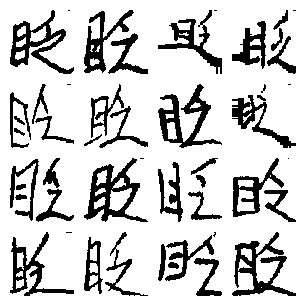 眨眨眨眨
眨眨眨眨
眨眨眨眨
眨眨眨眨